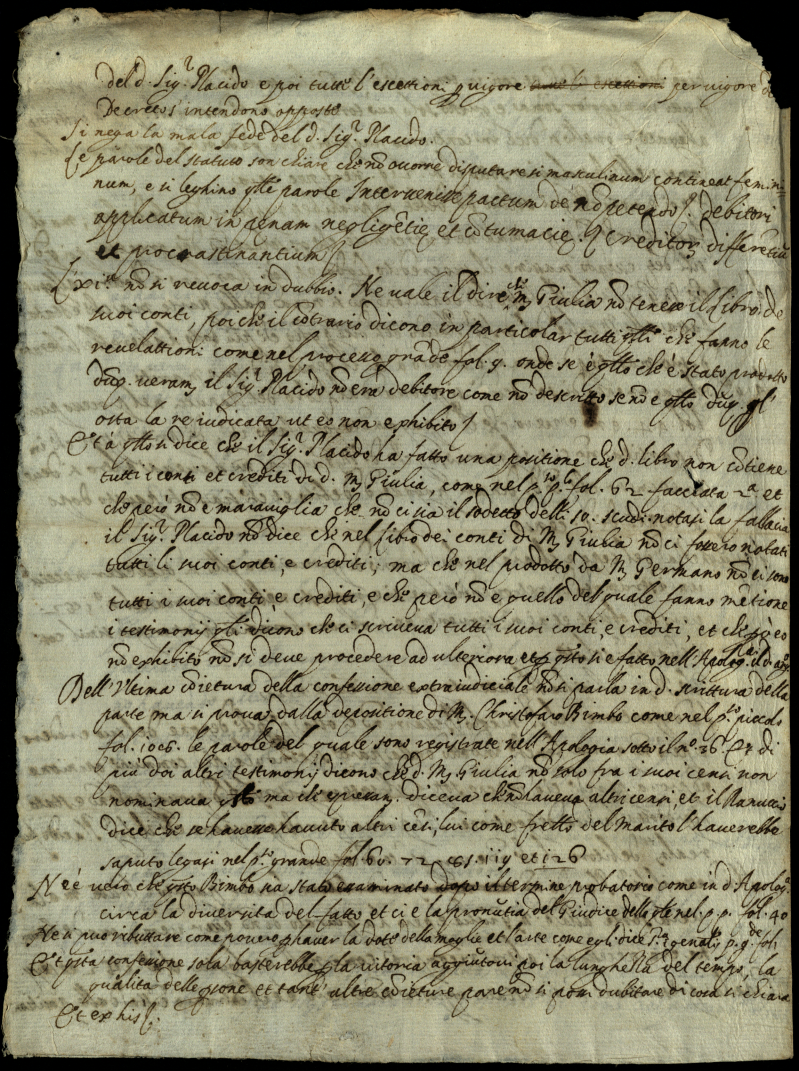 del d. Sig.r Placido e poi tutte l'eccettioni p vigore tutte le eccettioni per vigore de
Decreto s'intendono opposte
Si nega la mala fede del d. Sig.r Placido.
Le parole del statuto son chiare che nō occorre disputare si masculinum contineat femini-
num, e si leghino q̄lle parole Intervenisse pactum de nō petendo debitori
applicatum in pēnam negligētie et cōtumacie creditor differētiū
et procrastinantium
nō si revoca in dubbio. Ne vale il dire che M. Giulia nō tenesse il libro de
suoi conti, poiche il cōtrario dicono in particolar tutti q̄lli che fanno le
revelattioni come nel processo grāde fol. 9. onde se è q̄llo che è stato prodotto
il Sig.r Placido nō era debitore come nō descritto se nō è q̄llo
osta la re iudicata ut eo non exhibito
Et a q̄sto si dice che il Sig.r Placido ha fatto una positione che d. libro non cōtiene
tutti i conti et crediti di d. M. Giulia, come nel p.o p.o fol. 62 facciata 2.a et
che però nō è maraviglia che nō ci sia il sodetto delli 50. scudi. notasi la fallacia
il Sig.r Placido nō dice che nel libro dei conti di M. Giulia nō ci fossero notati
tutti li suoi conti, e crediti; ma che nel prodotto da M. Germano nō ci sono
tutti i suoi conti e crediti, e che però nō è quello del quale fanno mētione
i testimonij q̄li dicono che ci scriveva tutti i suoi conti e crediti, et che eo
nō exhibito nō si deve procedere ad ulteriora et q̄sto si è fatto nell'Apolog.a
Dell'Ultima cōiettura della confessione extraiudiciale nō si parla in d. scrittura della
parte ma si prova dalla depositione di M. Christofaro Bimbo come nel p.o piccolo
fol. 106. le parole del quale sono registrate nell'Apologia sotto il n.o 36. Et di
più doi altri testimonij dicono che d. M. Giulia nō solo fra i suoi censi non
nominava q̄sto ma diceva che nō haveva altri censi, et il Ranuccio
dice che se havesse havuto altri cēsi, lui come fr̄ello del Marito l'haverebbe
saputo legasi nel p.o grande fol. 60. 72. 119 et 126
Nè è vero che q̄sto Bimbo sia stato esaminato dopo il termine probatorio come in d. Apolog.a
circa la diversita del fatto et ci è la pronūtia del Giudice nel p. p. fol. 40
Ne si può ributtare come povero haver la dote della moglie et l'arte come egli dice fol.
Et q̄sta confessione sola basterebbe p la vittoria aggiuntovi poi la lunghezza del tempo, la
qualita delle et tant' altre cōietture pare nō si possi dubitare di cosa si chiara
Et ex his